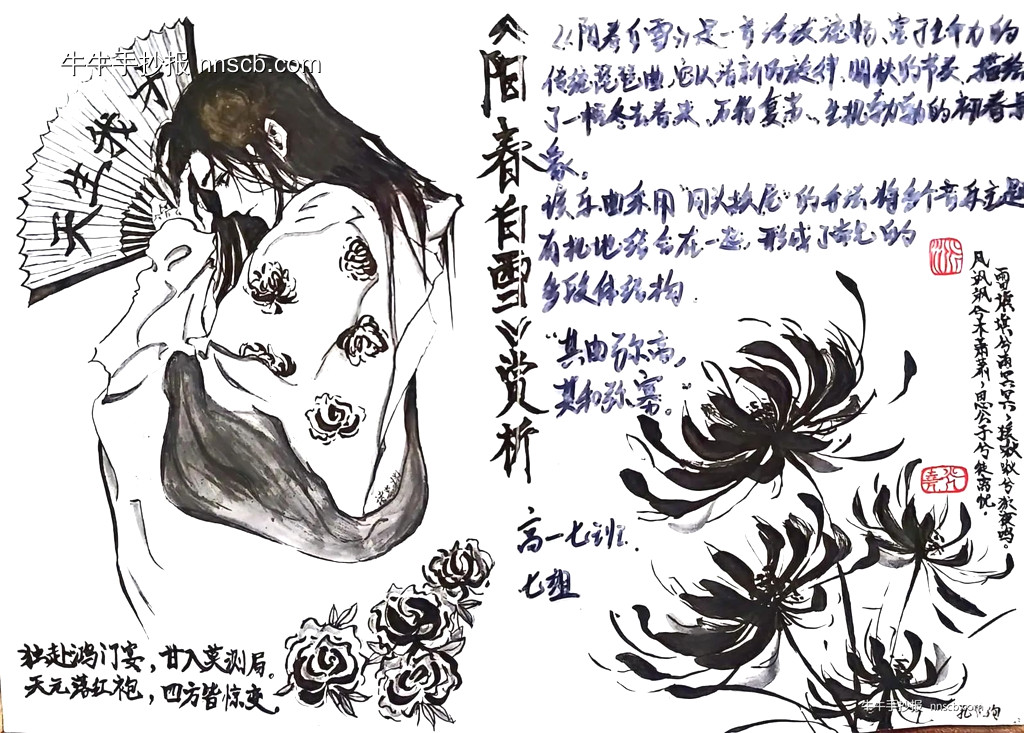 牛牛手抄报 nnscb.com
天生我才
《阳春白雪》赏析
《阳春白雪》是一首活泼流畅、富于生命力的
传统琵琶曲，它以清新的旋律、明快的节奏、描绘
了一幅冬去春来，万物复苏、生机勃勃的初春景
象。
该乐曲采用"同头换尾"的方法将多个音乐主题
有机地结合在一起，形成了
多段体结构.
"其曲弥高，
其和弥寡。"
高一七班.
七组
雷填填兮雨冥冥，猨啾啾兮狖夜鸣。
风飒飒兮木萧萧，思公子兮徒离忧。
独赴鸿门宴，甘入莫测局。
天元落红袍，四方皆惊变。
牛牛手抄报 nnscb.com